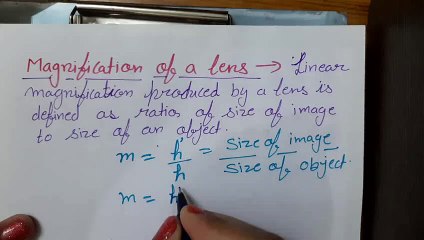 Magnification of a lens → Linear
magnification produced by a lens is
defined as ratios of size of image
to size of an object.
m = h'/h = Size of image/Size of object.
m = h'